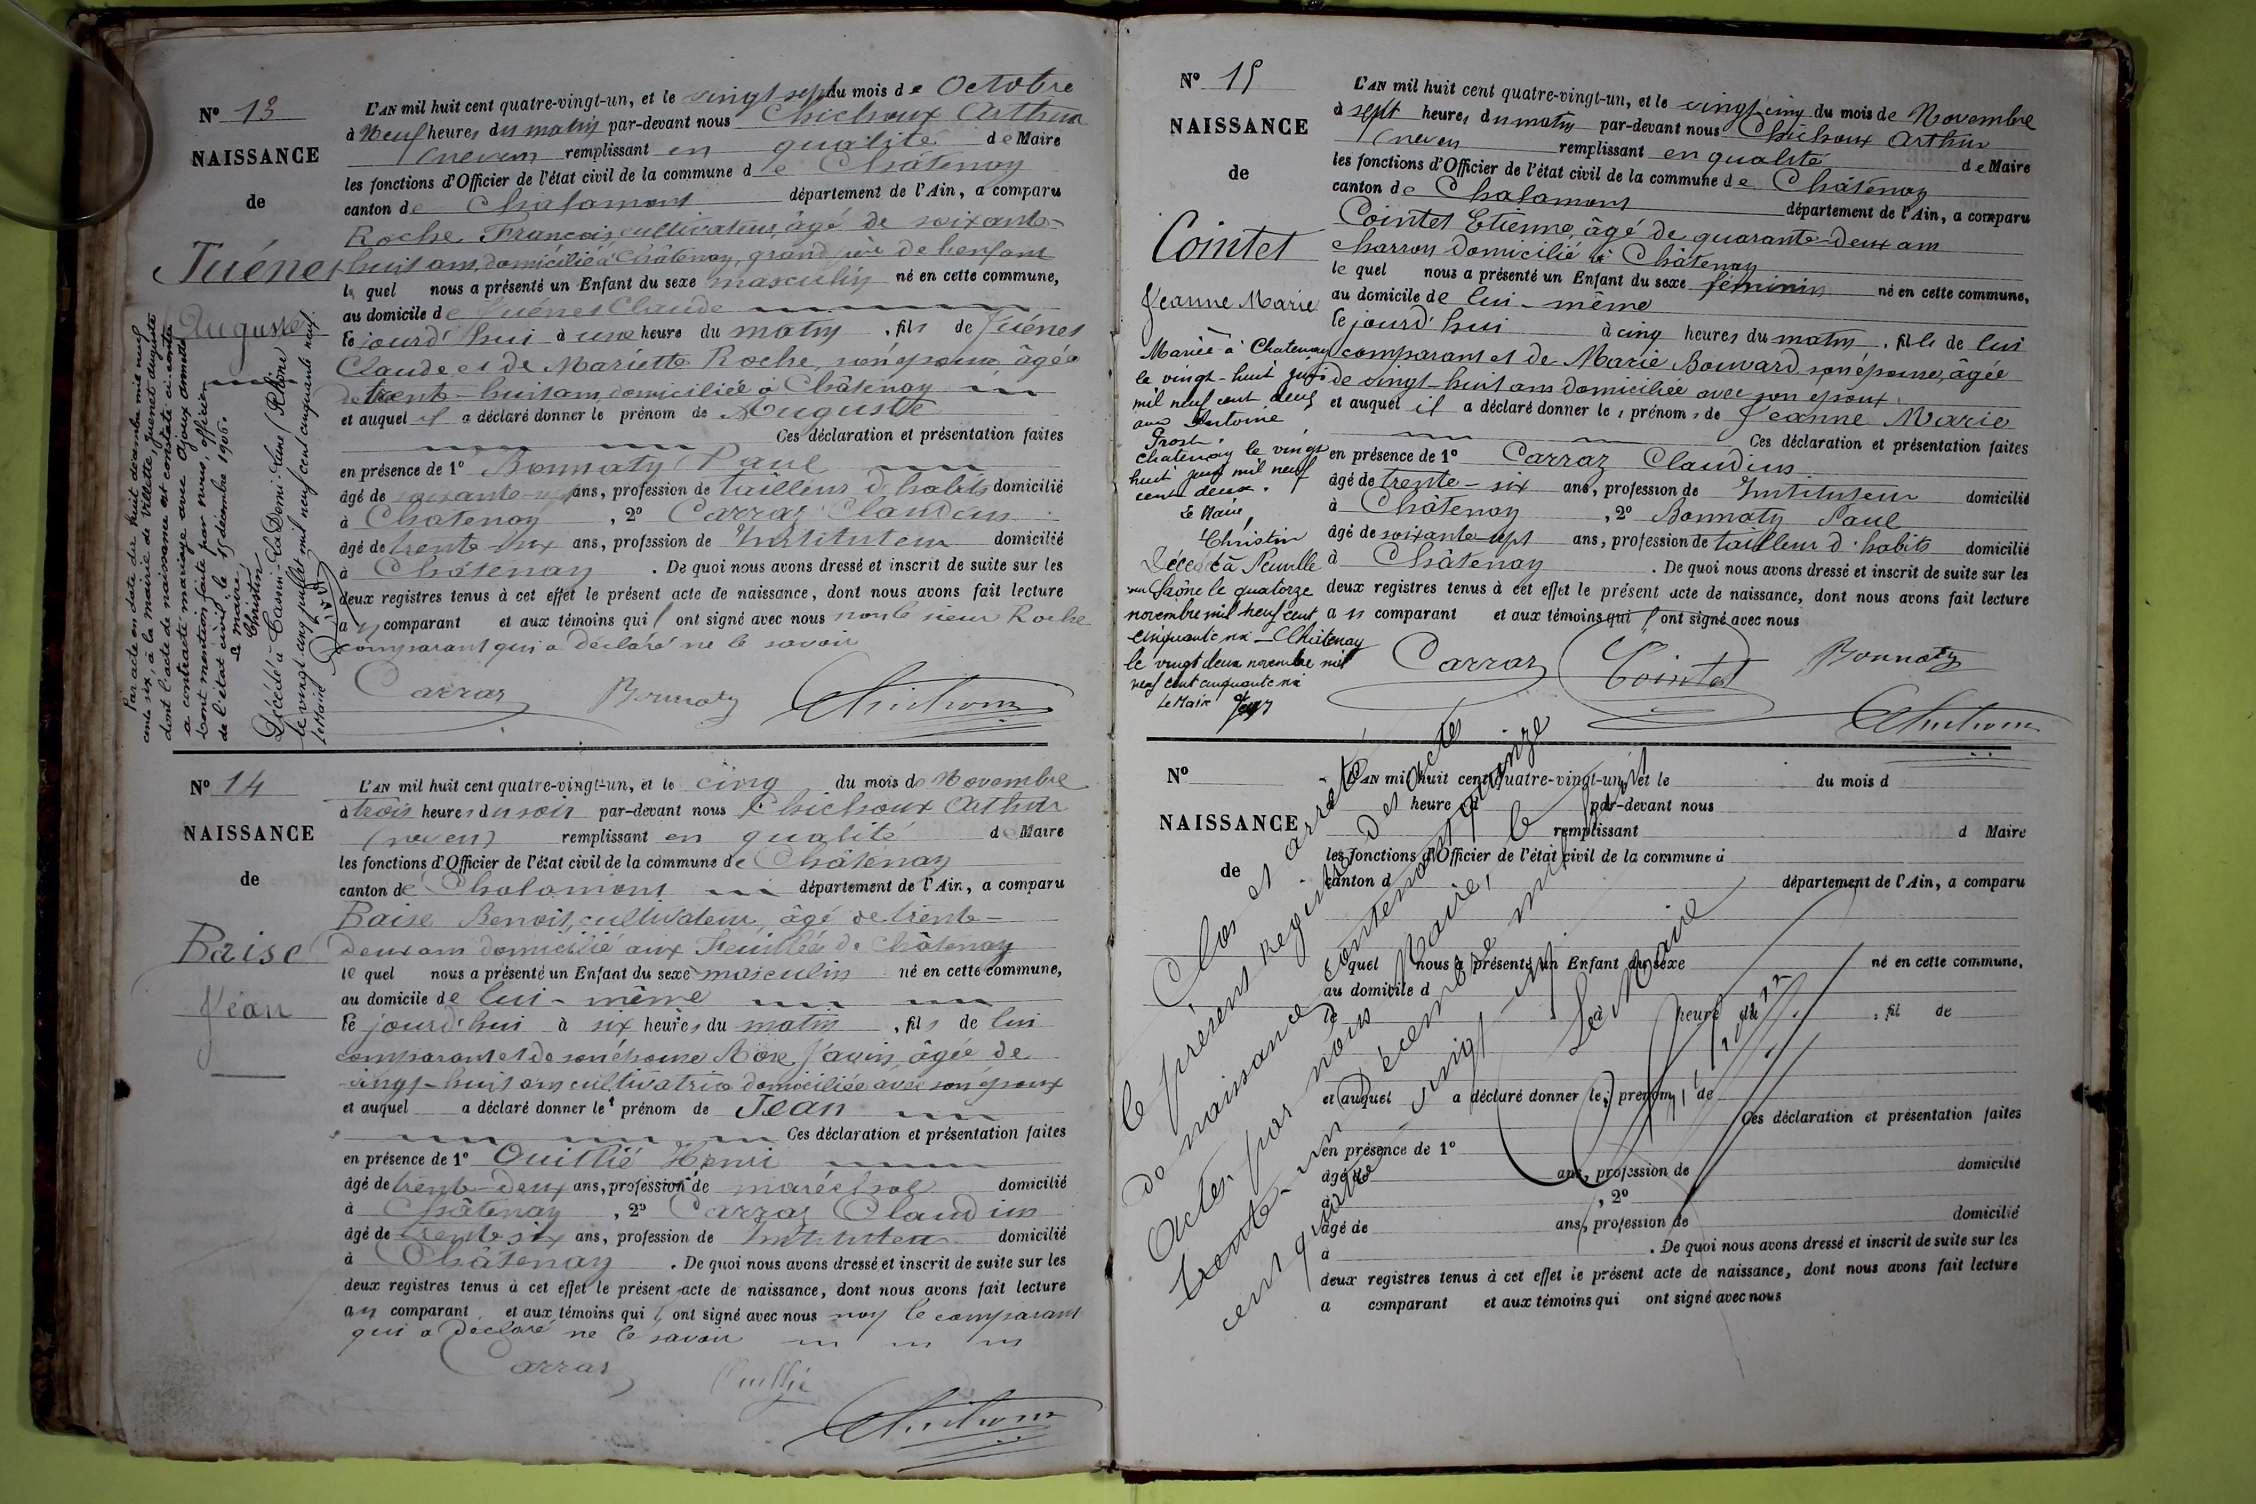 N° 13
NAISSANCE
de
Juénet
Auguste
Par acte en date du huit décembre mil neuf
cent six, à la mairie de Villette, Juenet Auguste
dont l'acte de naissance est constaté ci-contre
a contracté mariage avec
dont mention faite par nous, officier
de l'état civil, le 15 décembre 1906.
Le maire,
Christin
Décédé à (Rhône)
le vingt cinq juillet mil neuf cent cinquante neuf.
Le Maire
L'AN mil huit cent quatre-vingt-un, et le vingt sept du mois de Octobre
à Neuf heures du matin par-devant nous Chichoux Arthur
(neveu) remplissant en qualité de Maire
les fonctions d'Officier de l'état civil de la commune de Châtenay
canton de Chalamont département de l'Ain, a comparu
Roche François, cultivateur, âgé de soixante-
huit ans, domicilié à Châtenay, grand père de l'enfant
lequel nous a présenté un Enfant du sexe masculin né en cette commune,
au domicile de Juénet Claude
le jourd'hui à une heure du matin, fils de Juénet
Claude et de Mariette Roche, son épouse âgée
de trente-huit ans, domiciliée à Châtenay
et auquel il a déclaré donner le prénom de Auguste
Ces déclaration et présentation faites
en présence de 1° Bonnaty Paul
âgé de soixante-sept ans, profession de tailleur d'habits domicilié
à Châtenay, 2° Carraz Claudius
âgé de trente six ans, profession de Instituteur domicilié
à Châtenay. De quoi nous avons dressé et inscrit de suite sur les
deux registres tenus à cet effet le présent acte de naissance, dont nous avons fait lecture
au comparant et aux témoins qui ont signé avec nous non le sieur Roche
comparant qui a déclaré ne le savoir
Carraz Bonnaty Chichoux
N° 14
NAISSANCE
de
Baise
Jean
L'AN mil huit cent quatre-vingt-un, et le cinq du mois de Novembre
à trois heures du soir par-devant nous Chichoux Arthur
(neveu) remplissant en qualité de Maire
les fonctions d'Officier de l'état civil de la commune de Châtenay
canton de Chalamont département de l'Ain, a comparu
Baise Benoit, cultivateur, âgé de trente-
deux ans domicilié aux Feuillées de Châtenay
lequel nous a présenté un Enfant du sexe masculin né en cette commune,
au domicile de lui-même
le jourd'hui à six heures du matin, fils de lui
comparant et de son épouse Rose Janin, âgée de
vingt-huit ans cultivatrice domiciliée avec son époux
et auquel a déclaré donner le prénom de Jean
Ces déclaration et présentation faites
en présence de 1° Ouillié Henri
âgé de trente-deux ans, profession de maréchal domicilié
à Châtenay, 2° Carraz Claudius
âgé de trente six ans, profession de Instituteur domicilié
à Châtenay. De quoi nous avons dressé et inscrit de suite sur les
deux registres tenus à cet effet le présent acte de naissance, dont nous avons fait lecture
au comparant et aux témoins qui ont signé avec nous non le comparant
qui a déclaré ne le savoir
Carraz Ouillié
Chichoux
N° 15
NAISSANCE
de
Cointet
Jeanne Marie
Mariée à Chatenay
le vingt-huit juin
mil neuf cent deux
avec Antoine
Prost.
Chatenay le vingt
huit juin mil neuf
cent deux.
Le Maire,
Christin
Décédée à Neuville
sur Saône le quatorze
novembre mil neuf cent
cinquante six - Châtenay
le vingt deux novembre mil
neuf cent cinquante six
Le Maire
L'AN mil huit cent quatre-vingt-un, et le vingt cinq du mois de Novembre
à sept heures du matin par-devant nous Chichoux Arthur
(neveu) remplissant en qualité de Maire
les fonctions d'Officier de l'état civil de la commune de Châtenay
canton de Chalamont département de l'Ain, a comparu
Cointet Etienne, âgé de quarante-deux ans
charron domicilié à Châtenay
lequel nous a présenté un Enfant du sexe féminin né en cette commune,
au domicile de lui-même
le jourd'hui à cinq heures du matin, fille de lui
comparant et de Marie Bouvard son épouse, âgée
de vingt-huit ans domiciliée avec son époux.
et auquel il a déclaré donner les prénoms de Jeanne Marie
Ces déclaration et présentation faites
en présence de 1° Carraz Claudius
âgé de trente-six ans, profession de Instituteur domicilié
à Châtenay, 2° Bonnaty Paul
âgé de soixante sept ans, profession de tailleur d'habits domicilié
à Châtenay. De quoi nous avons dressé et inscrit de suite sur les
deux registres tenus à cet effet le présent acte de naissance, dont nous avons fait lecture
au comparant et aux témoins qui ont signé avec nous
Carraz Cointet Bonnaty
Chichoux
N°
NAISSANCE
de
L'AN mil huit cent quatre-vingt-un, et le du mois d
à heure d par-devant nous
remplissant d Maire
les fonctions d'Officier de l'état civil de la commune d
canton d département de l'Ain, a comparu
le quel nous a présenté un Enfant du sexe né en cette commune,
au domicile d
le à heure du , fil de
et auquel a déclaré donner le prénom de
Ces déclaration et présentation faites
en présence de 1°
âgé de ans, profession de domicilié
à , 2°
âgé de ans, profession de domicilié
à . De quoi nous avons dressé et inscrit de suite sur les
deux registres tenus à cet effet le présent acte de naissance, dont nous avons fait lecture
a comparant et aux témoins qui ont signé avec nous
Clos et arrêté
le présent registre des actes
de naissance contenant quinze
actes, par nous Maire, le
trente-un Décembre mil huit
cent quatre-vingt-un
Le Maire